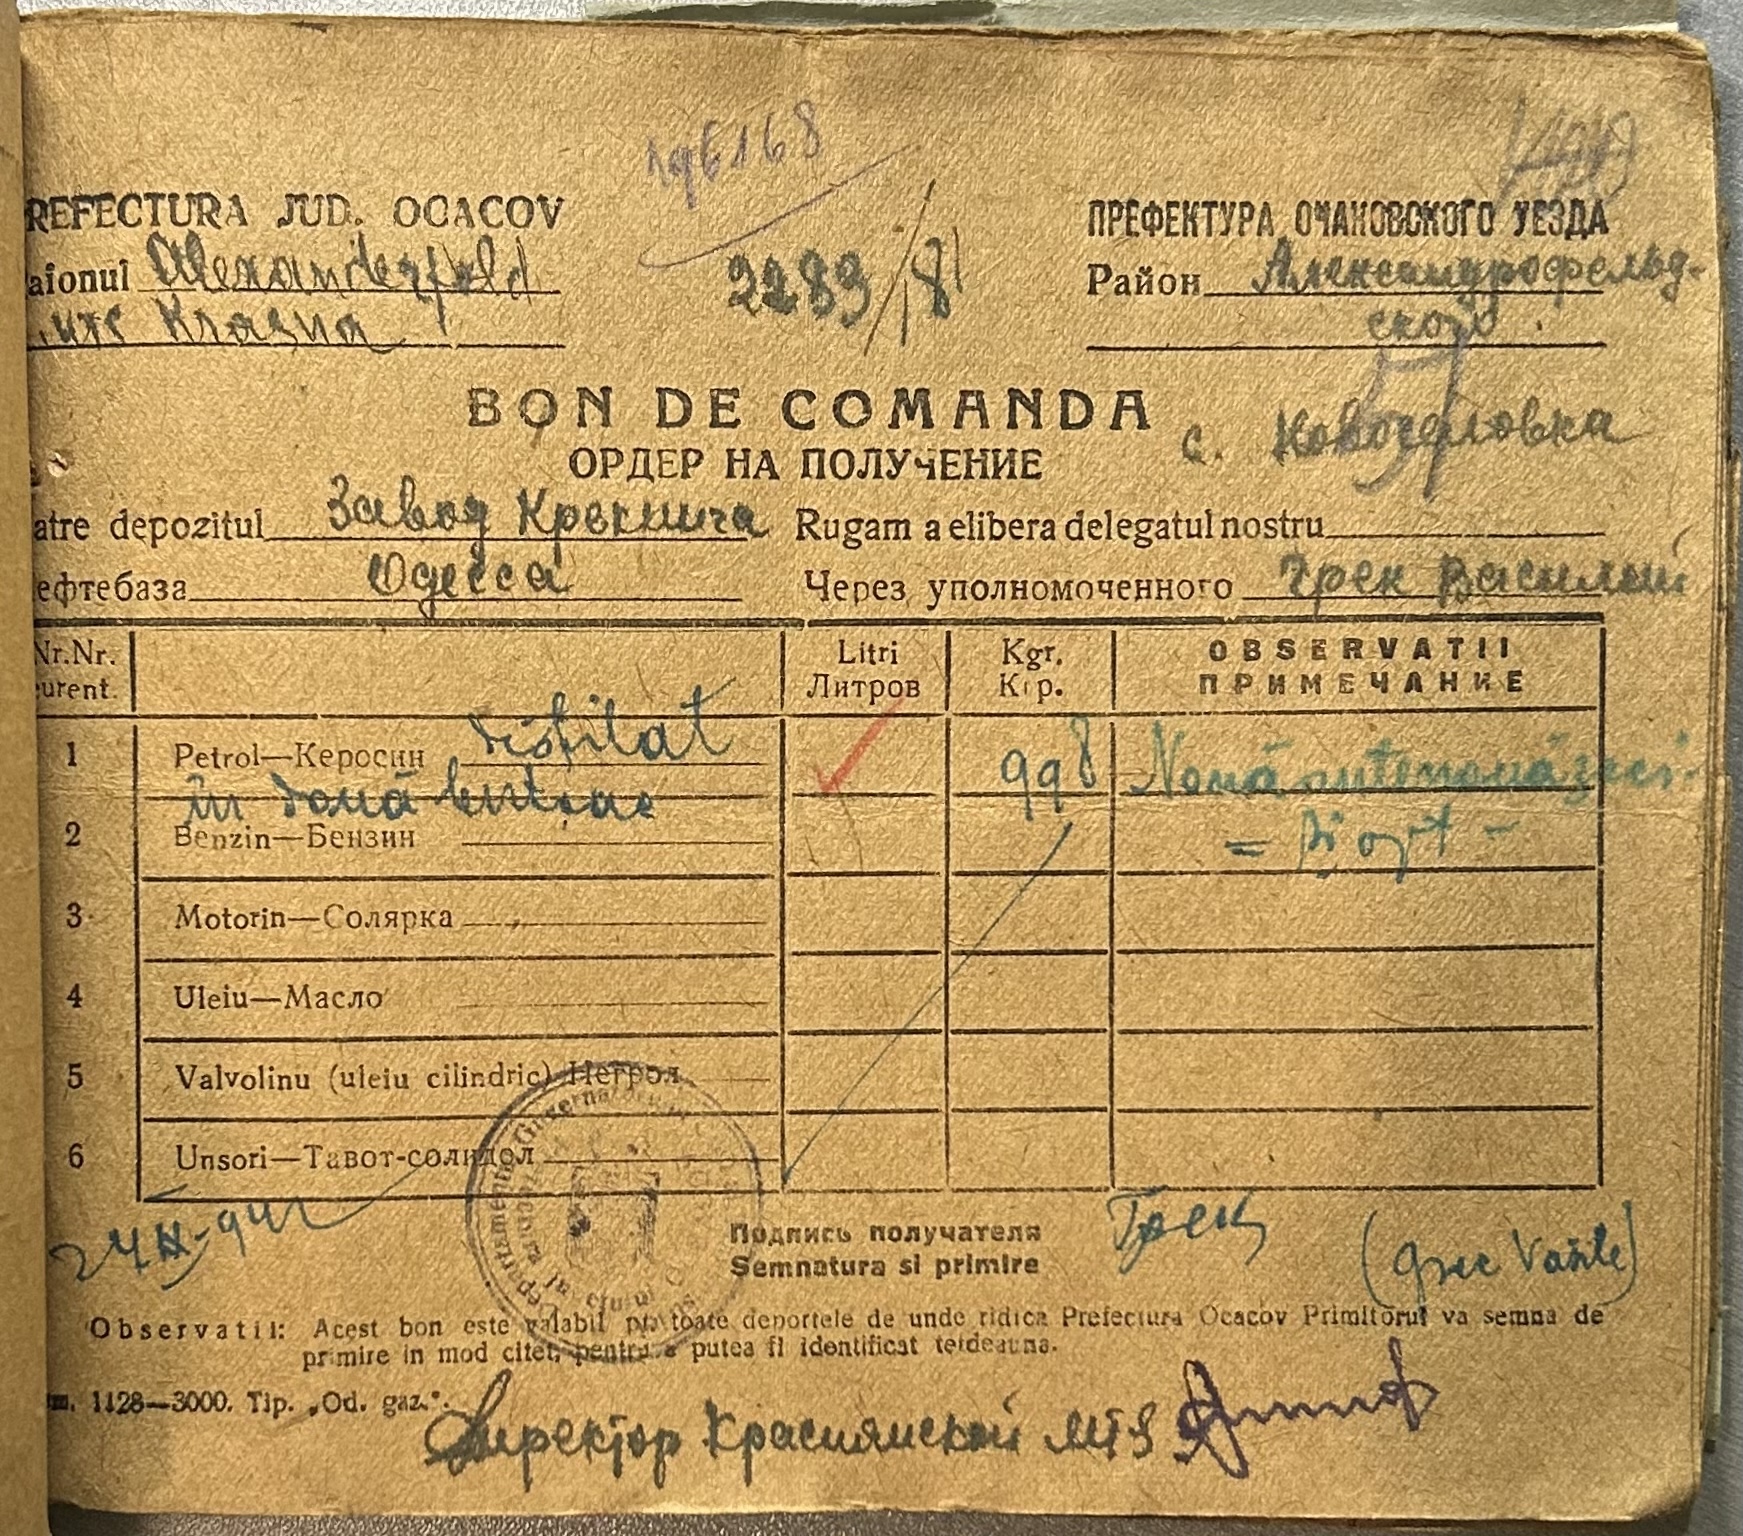 196168
REFECTURA JUD. OCACOV
ПРЕФЕКТУРА ОЧАКОВСКОГО УЕЗДА
aionul Alexanderfeld
2289/81
Район Александрофельд-
Krasna
ского
BON DE COMANDA
ОРДЕР НА ПОЛУЧЕНИЕ
с. Новоселовка
atre depozitul Завод Крекинга
Rugam a elibera delegatul nostru
ефтебаза Одесса
Через уполномоченного Грек Василий
Nr.Nr. Litri Kgr. OBSERVATII
urent. Литров Кгр. ПРИМЕЧАНИЕ
1 Petrol—Керосин distilat 998 Nouăsutenouăzeci
în două butoae
= și opt -
2 Benzin—Бензин
3 Motorin—Солярка
4 Uleiu—Масло
5 Valvolinu (uleiu cilindric) Негрол
6 Unsori—Тавот-солидол
Подпись получателя Грек
Semnatura si primire (Grec Vasile)
Observatii: Acest bon este valabil pta toate deportele de unde ridica Prefectura Ocacov Primitorul va semna de
primire in mod citet, pentru a putea fi identificat totdeauna.
m. 1128—3000. Tip. „Od. gaz.".
Директор Краснянской МТS